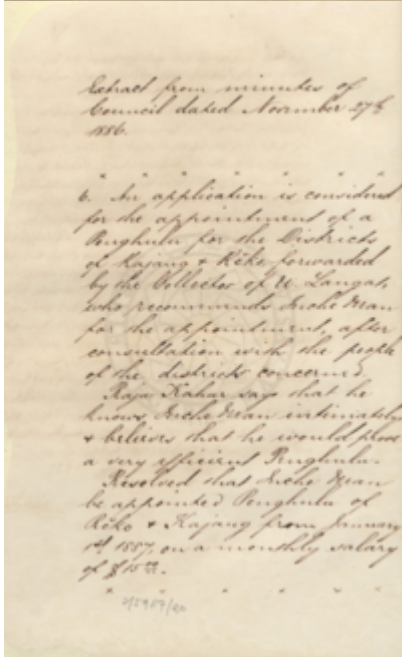 Extract from minutes of
Council dated November 27th
1886.
" " " " " "
6. An application is considered
for the appointment of a
Penghulu for the Districts
of Kajang & Rĕko forwarded
by the Collector of U. Langat,
who recommends Inche Wan
for the appointment, after
consultation with the people
of the districts concerned.
Raja Kahar says that he
knows Inche Wan intimately
& believes that he would prove
a very efficient Penghulu.
Resolved that Inche Wan
be appointed Penghulu of
Rĕko & Kajang from January
1st 1887, on a monthly salary
of $15.00.
" " " " "